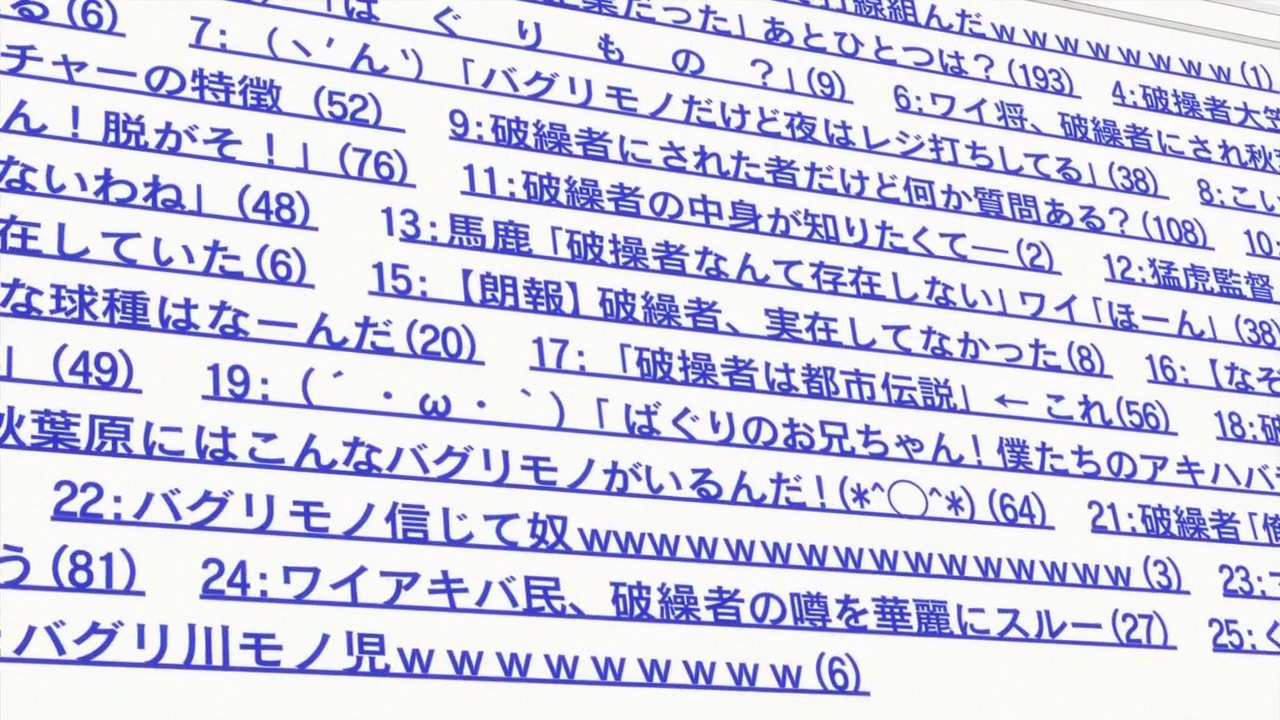 る(6)
線組んだｗｗｗｗｗｗｗ(1)
だった」あとひとつは？(193)
4:破操者大
7:（ヽ´ん`）「ばぐりもの？」(9)
6:ワイ将、破繰者にされ秋
チャーの特徴 (52)
「バグリモノだけど夜はレジ打ちしてる」(38)
8:こい
ん！脱がそ！」(76)
9:破繰者にされた者だけど何か質問ある？(108)
10:
ないわね」(48)
11:破繰者の中身が知りたくて―(2)
12:猛虎監督
在していた(6)
13:馬鹿「破操者なんて存在しない」ワイ「ほーん」(38)
な球種はなーんだ(20)
15:【朗報】破繰者、実在してなかった(8)
16:【なぞ
」(49)
17:「破操者は都市伝説」←これ(56)
18:破
19:（´・ω・｀）「ばぐりのお兄ちゃん！僕たちのアキハバ
秋葉原にはこんなバグリモノがいるんだ！(*^○^*) (64)
21:破繰者「俺
22:バグリモノ信じて奴wwｗｗｗｗｗｗｗｗｗｗｗｗｗ(3)
23:
う(81)
24:ワイアキバ民、破繰者の噂を華麗にスルー(27)
25:く
:バグリ川モノ児ｗｗｗｗｗｗｗｗｗ(6)